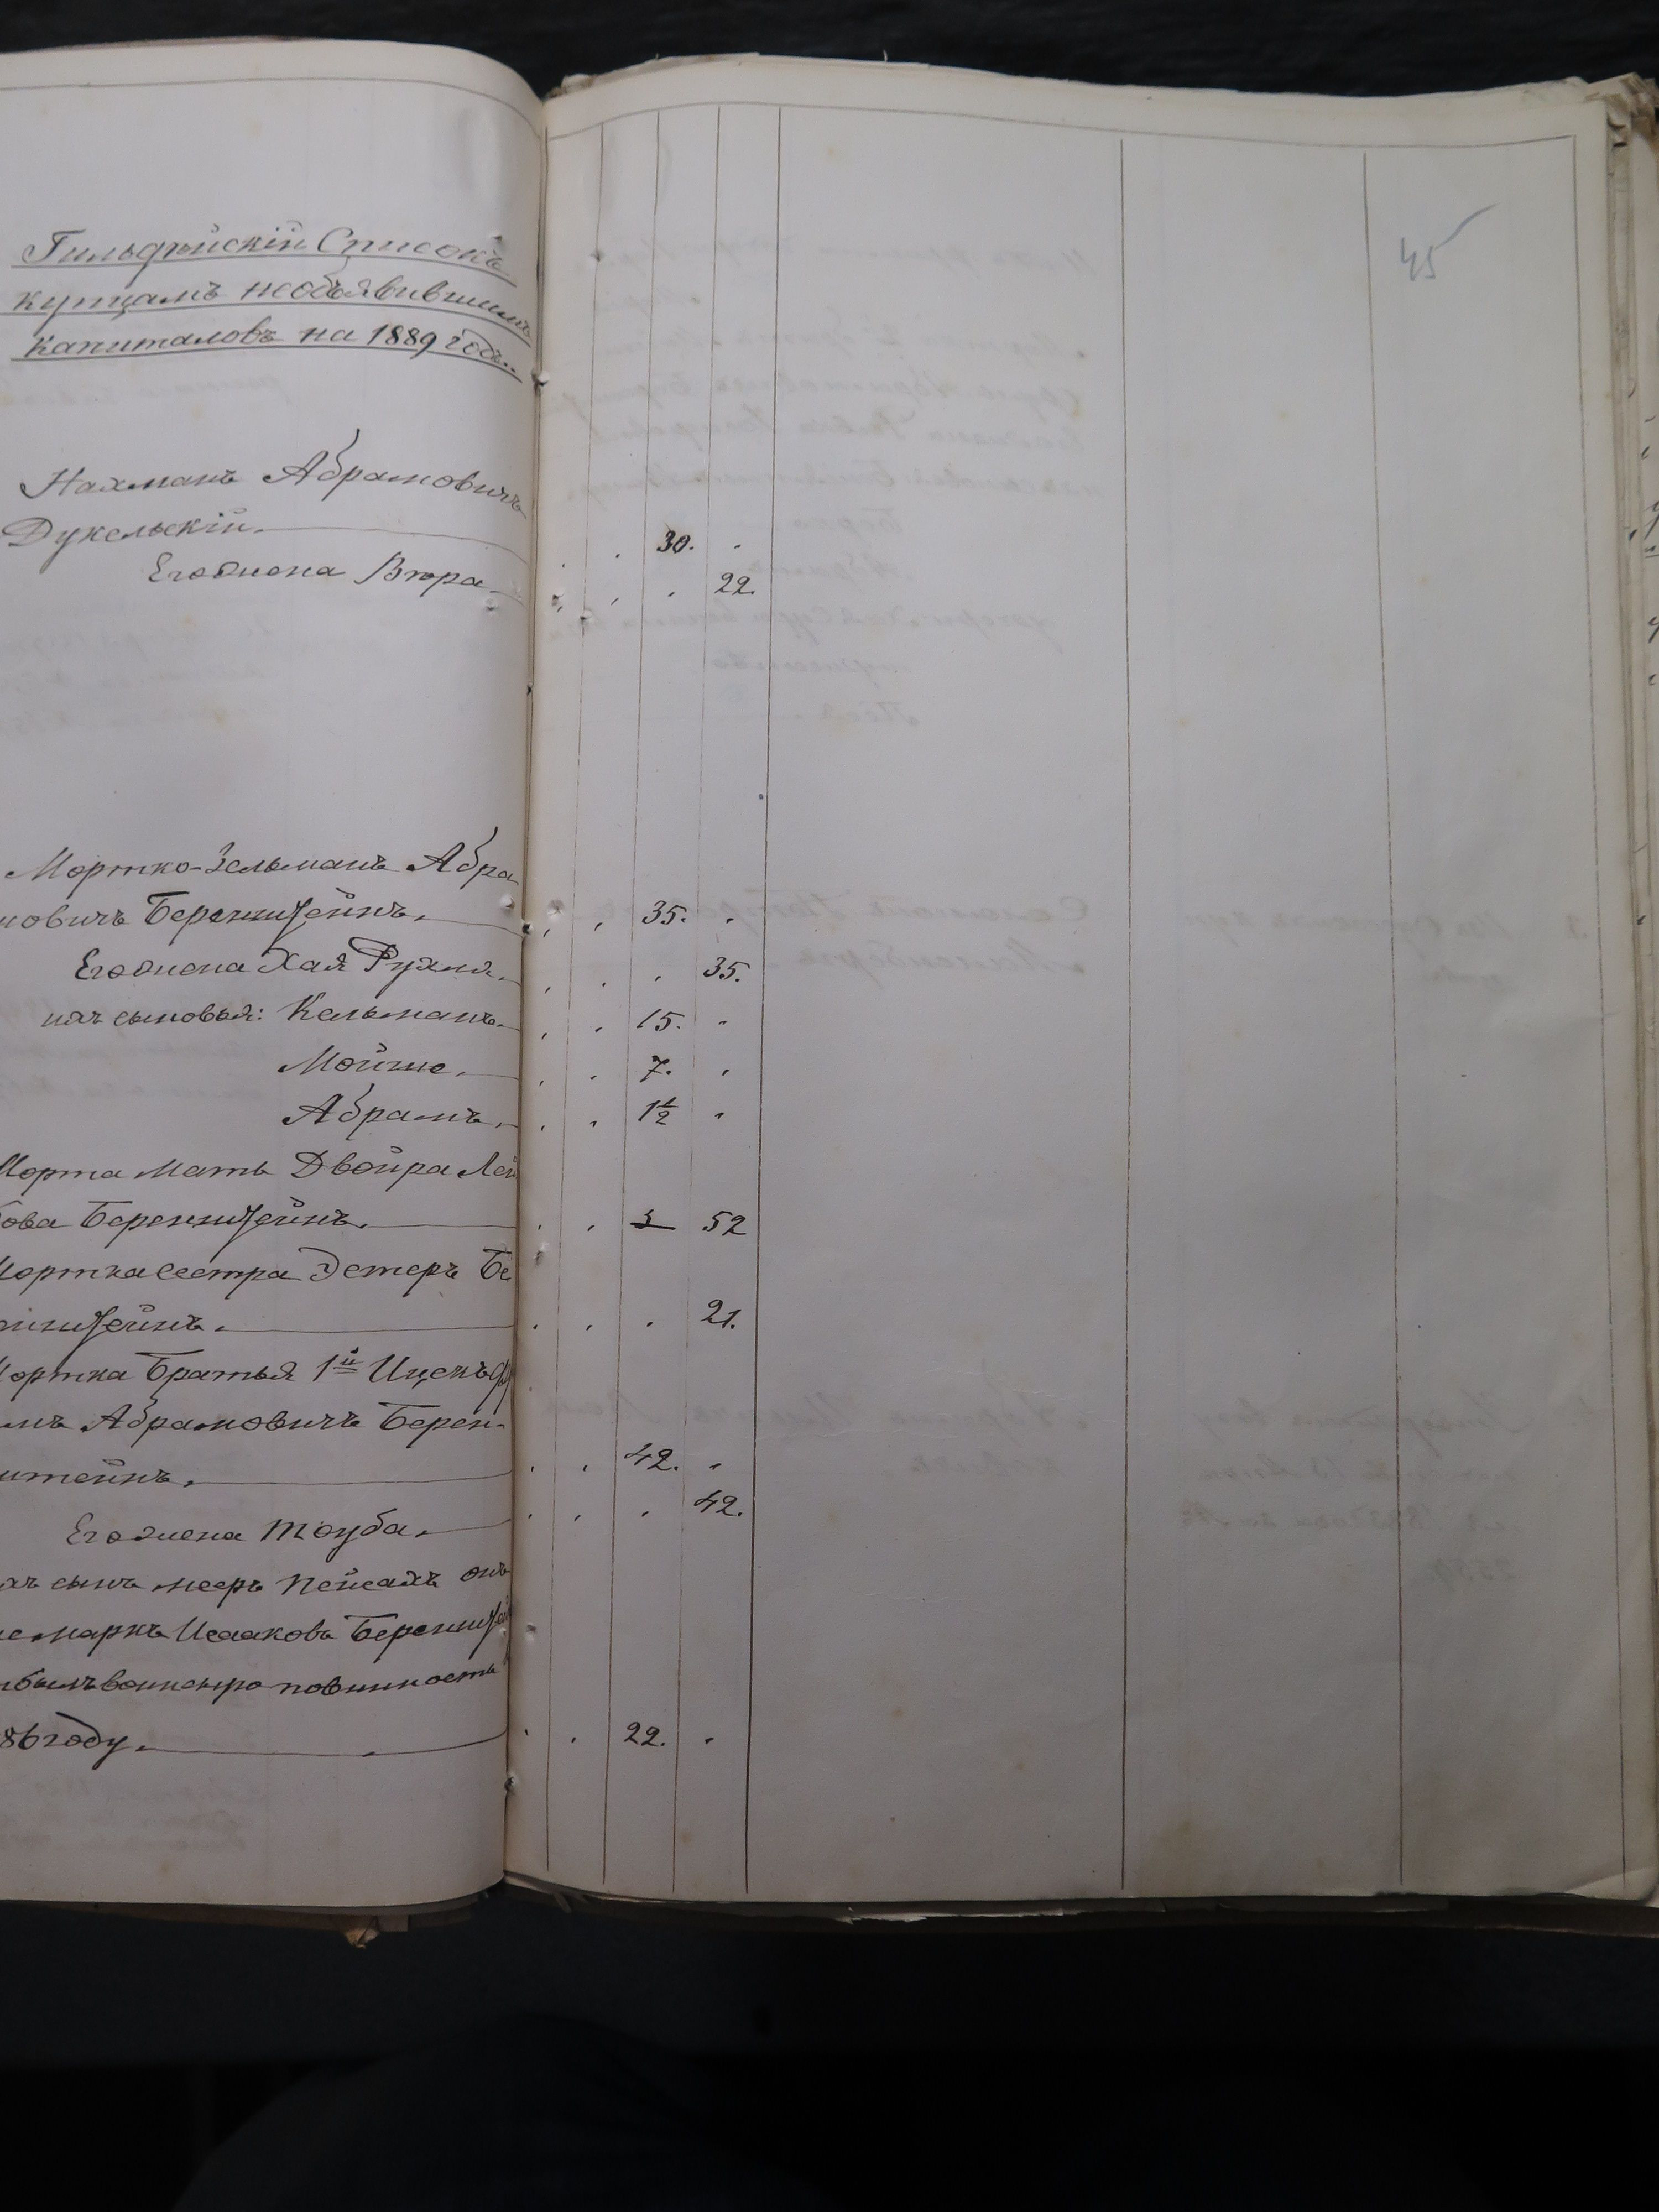 45
Гильдѣйскій Списокъ
купцамъ необъявившимъ
капиталовъ на 1889 годъ.
Нахманъ Абрамовичъ
Дукельскій. 30.
Его жена Вѣра 22.
Мортко-Зельманъ Абра
мовичъ Беренштейнъ. 35.
Его жена Хая Рухля. 35.
ихъ сыновья: Кельманъ. 15.
Мойше. 7.
Абрамъ. 1½
Морта мать Двойра Лей
бова Беренштейнъ. 52
Мортка сестра Эстеръ Бе
ренштейнъ. 21.
Мортка Братья 1й Ицекъ
Абрамовичъ Берен-
штейнъ. 42.
Его жена Тоуба. 42.
ихъ сынъ Мееръ Пейсахъ онъ
же Маркъ Исааковъ Беренштей
повинность
86 году. 22.